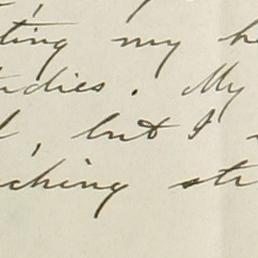 ting my h
tudies. My
d, but I
ching str